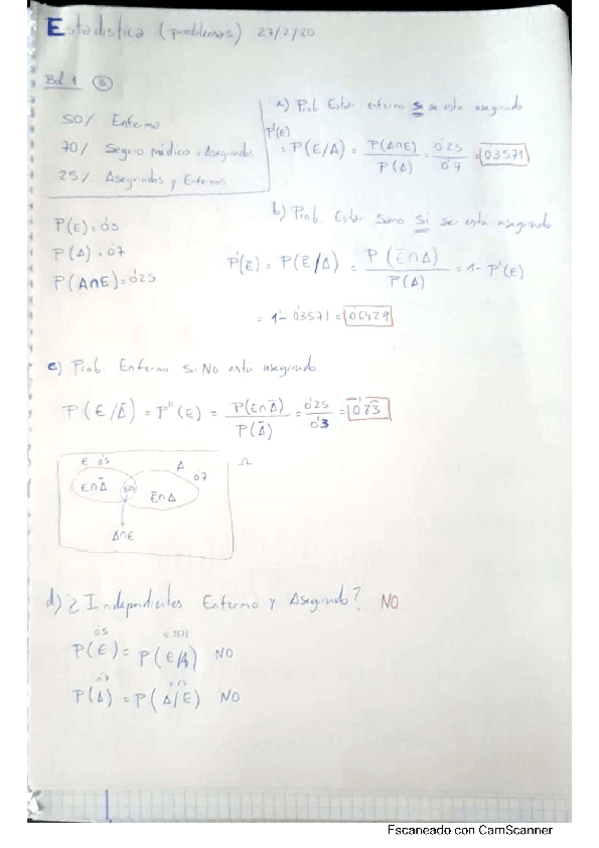 Estadística (problemas) 27/2/20
Bol 1 (3)
50% Enfermo
70% Seguro médico = Asegurados
25% Asegurados y Enfermos
P(E) = 0'5
P(A) = 0'7
P(A∩E) = 0'25
a) Prob Estar enfermo si se esta asegurado
P'(E)
= P(E/A) = P(A∩E) / P(A) = 0'25 / 0'7 = 0'3571
b) Prob. Estar sano si se esta asegurado
P'(Ē) = P(Ē/A) = P(Ē∩A) / P(A) = 1 - P'(E)
= 1 - 0'3571 = 0'6429
c) Prob. Enfermo si No esta asegurado
P(E/Ā) = P''(E) = P(E∩Ā) / P(Ā) = 0'25 / 0'3 = 0'83
E 0'5 A 0'7 Ω
E∩Ā Ē∩A
A∩E
d) ¿Independientes Enfermo y Asegurado? NO
0'5 0'3571
P(E) = P(E/A) NO
0'7
P(A) = P(A/E) NO
Escaneado con CamScanner